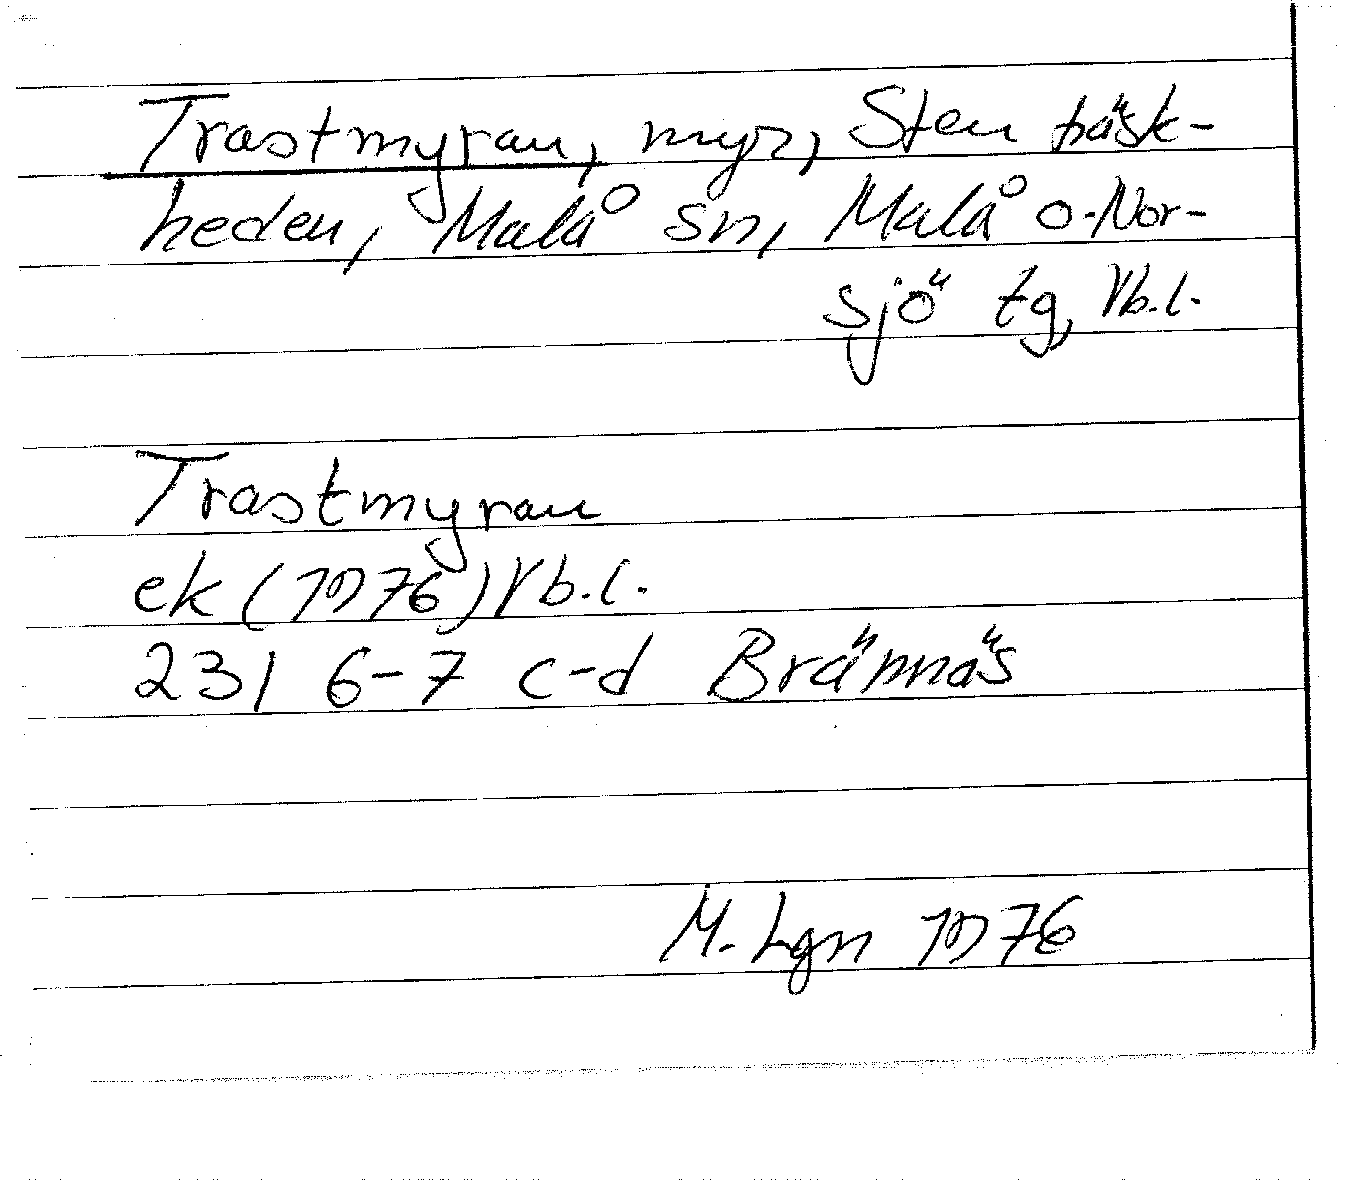 Trastmyran, myr, Stenträsk-
heden, Malå sn, Malå o. Nor-
sjö tg, Vb.l.
Trastmyran
ek (1976) Vb.l.
23 I 6-7 c-d Brännäs
M. Lgn 1976